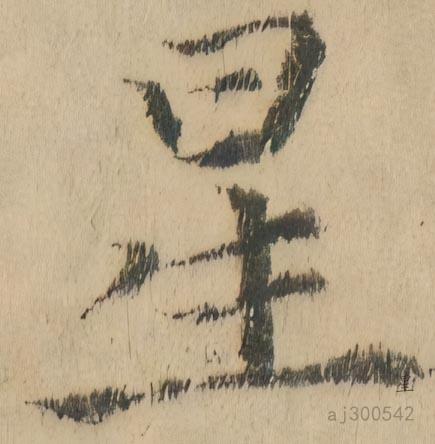 星
aj300542